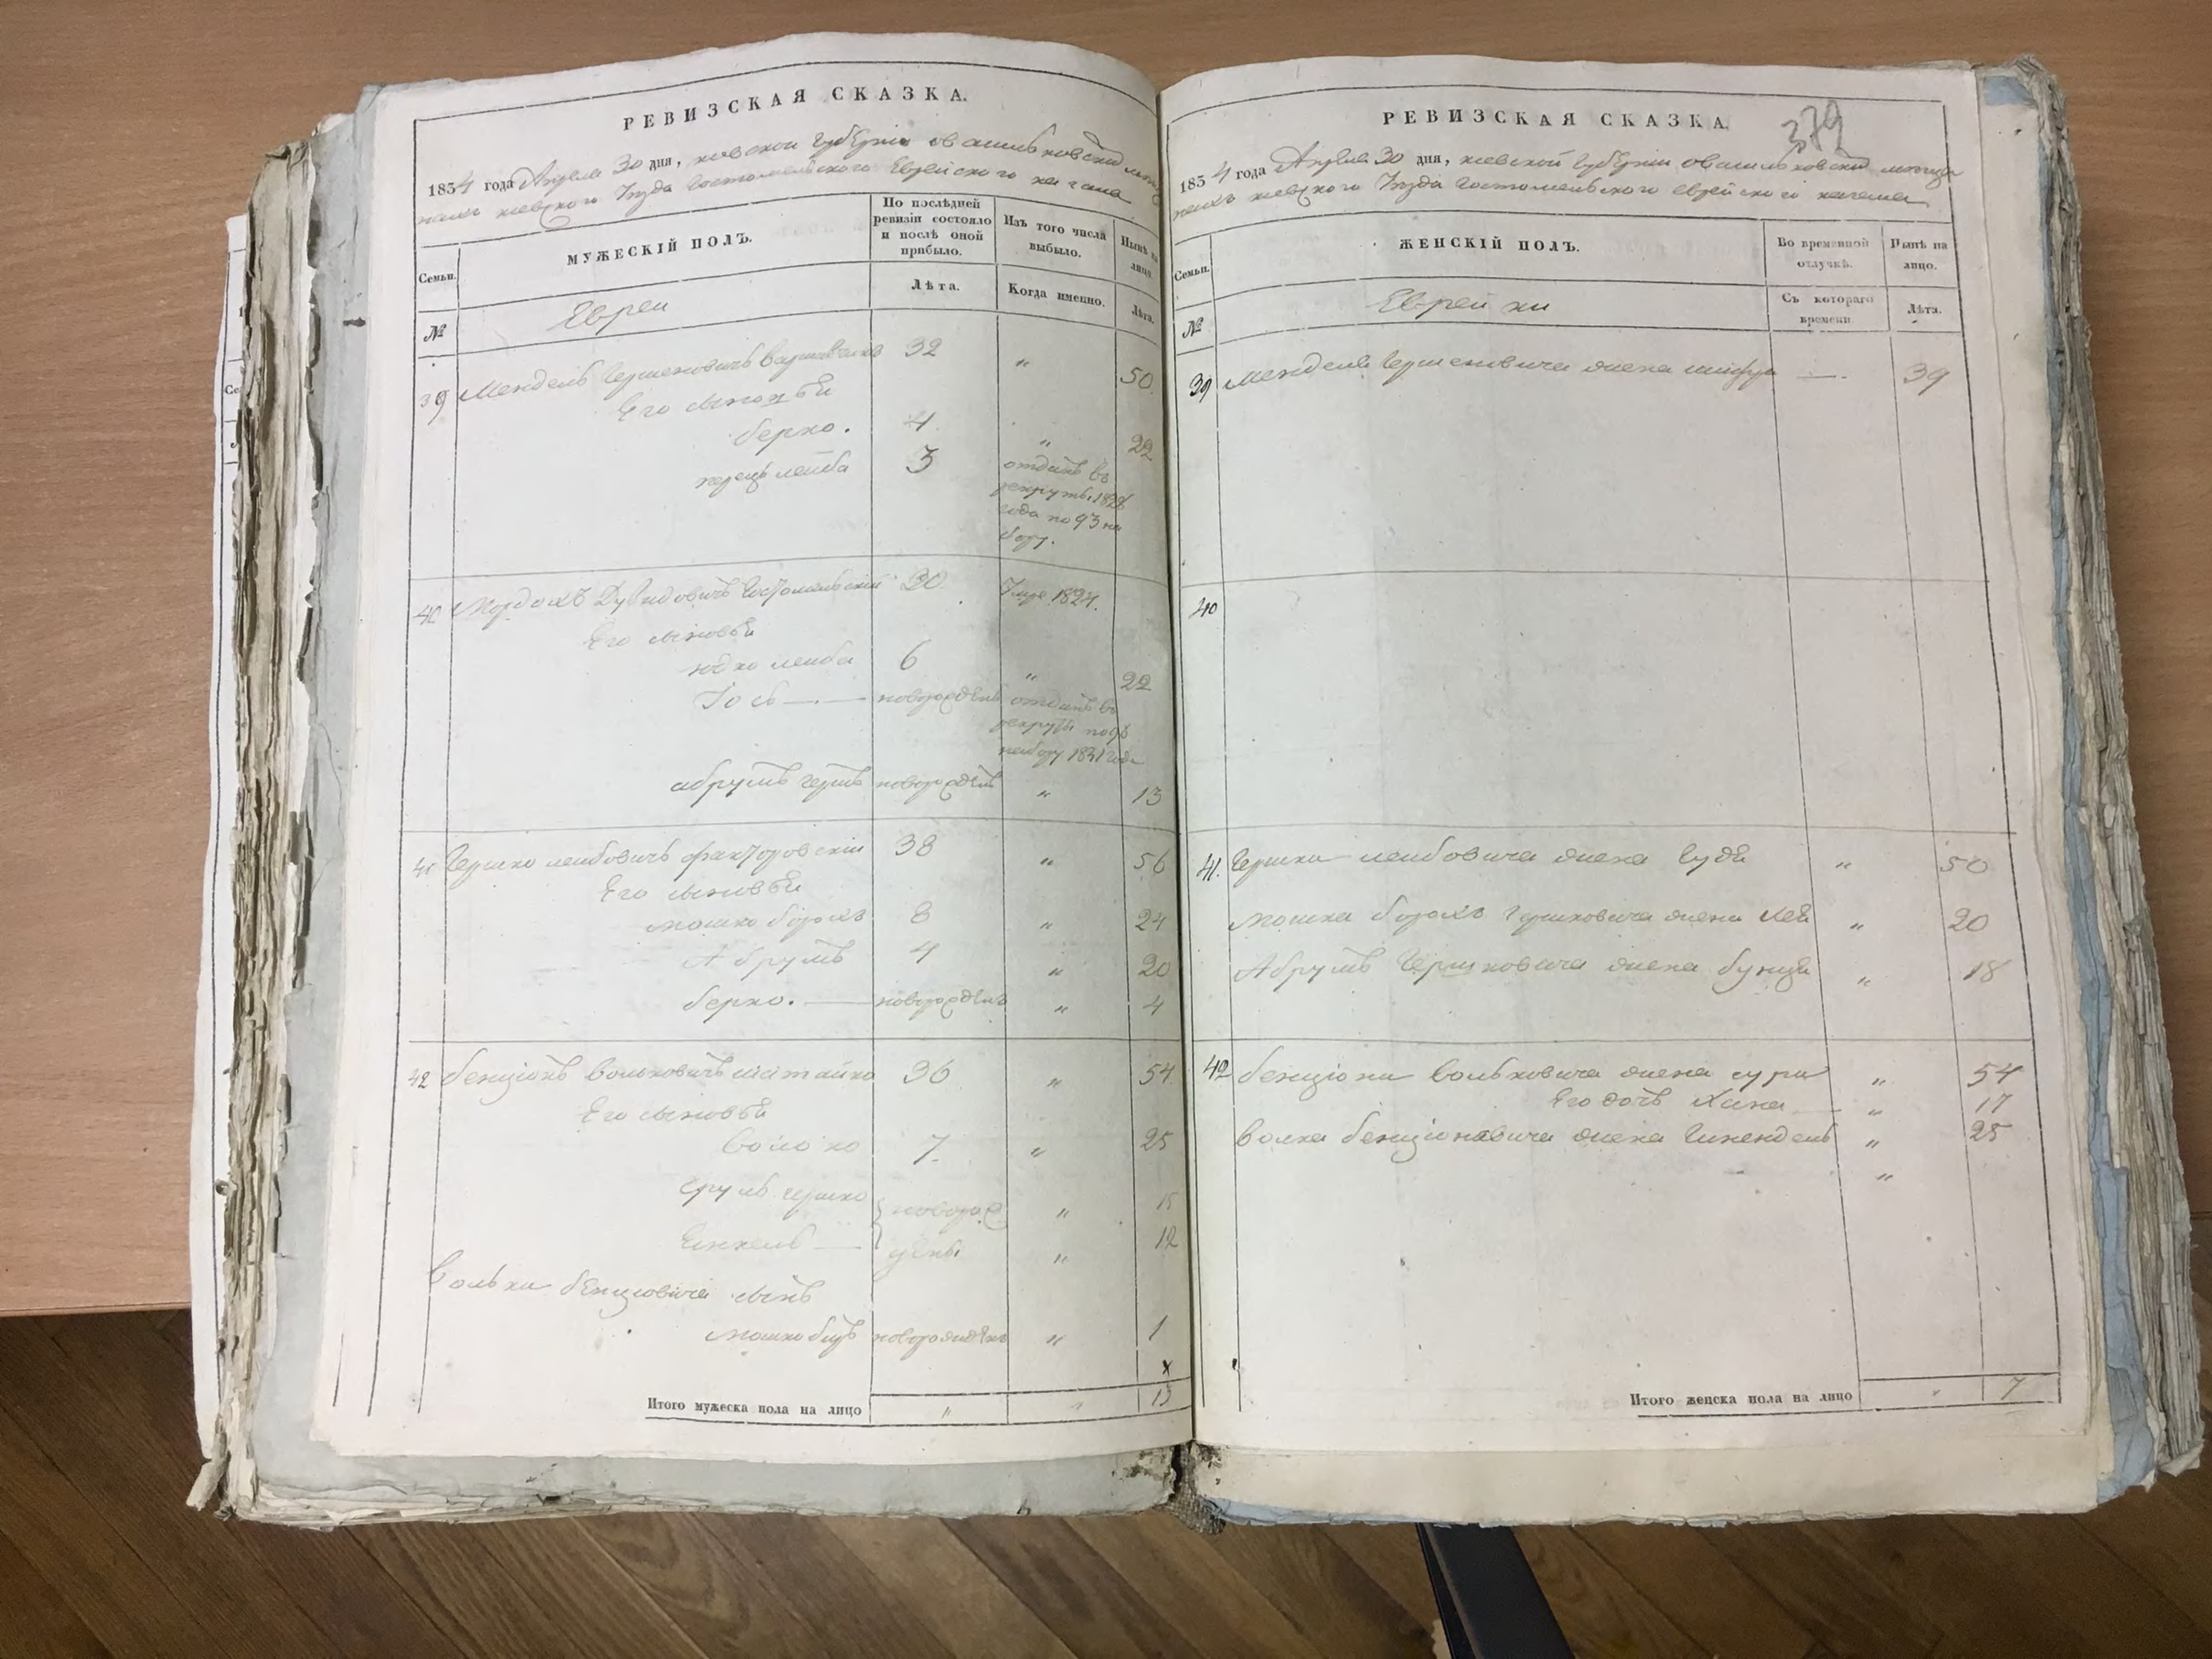 РЕВИЗСКАЯ СКАЗКА.
1834 года Апреля 30 дня, киевской губернии овасильковский мещ
киевского Уезда Гостомельского Еврейского кагала
Семьи.
МУЖЕСКІЙ ПОЛЪ.
По послѣдней ревизіи состояло и послѣ оной прибыло.
Изъ того числа выбыло.
Нынѣ на лицо.
№
Евреи
Лѣта.
Когда именно.
Лѣта.
39 Мендель Гершеновичъ 32 " 50
Его сыновьи
берко. 4 " 22
перецъ лейба 3 отданъ въ
рекруты 1828
года по 93 на
бору.
40 Мордохъ Дувидовичъ Гостомельскій 20. Умре 1824.
Его сыновьи
юдко лейба 6 " 22
Іось — новорожденъ отданъ въ
рекруты по 96
набору 1831 года
абрумъ гершъ новорожденъ " 13
41 Гершко лейбовичъ факторовскій 38 " 56
Его сыновьи
мошко борохъ 8 " 24
Абрумъ 4 " 20
берко. — новорожденъ " 4
42 бенціонъ вольковичъ шатайко 36 " 54
Его сыновьи
волько 7 " 25
сруль гершко новорож " 15
Енкель — дены " 12
Волька бенціовича сынъ
мошко беръ новорожденъ " 1
х
Итого мужеска пола на лицо " " 13
379
РЕВИЗСКАЯ СКАЗКА.
1834 года Апреля 30 дня, киевской губернии овасильковский мещ
киевского Уезда Гостомельского еврейского кагала
Семьи.
ЖЕНСКІЙ ПОЛЪ.
Во временной отлучкѣ.
Нынѣ на лицо.
№
Еврейки
Съ котораго времени
Лѣта.
39 Менделя Гершеновича жена шифра — 39
40
41. Гершка лейбовича жена Гудя " 50
мошка борохъ Гершковича жена хея " 20
Абрумъ Гершковича жена бунця " 18
42 бенціона вольковича жена сура " 54
Его дочь Хана — " 17
волка бенціоновича жена " 25
"
Итого женска пола на лицо " 7